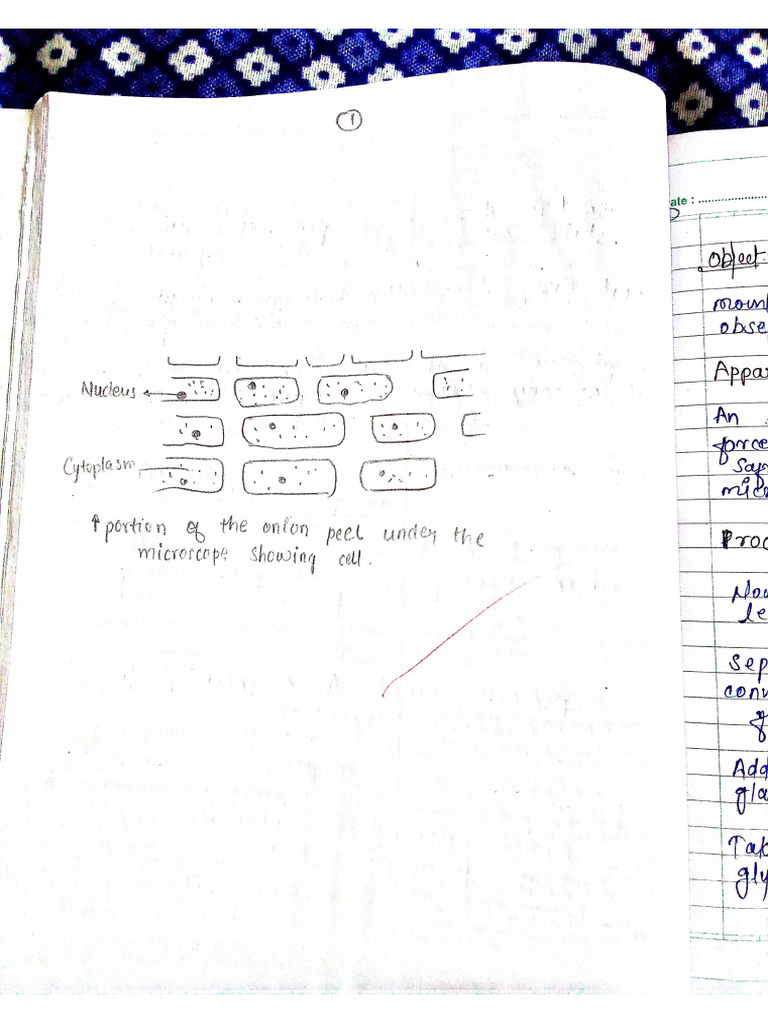 1
Nucleus
Cytoplasm
portion of the onion peel under the
microscope showing cell.
ate :
Object
obse
Appar
An
force
mic
Proc
le
Sep
conv
Add
gla
Tak
gly